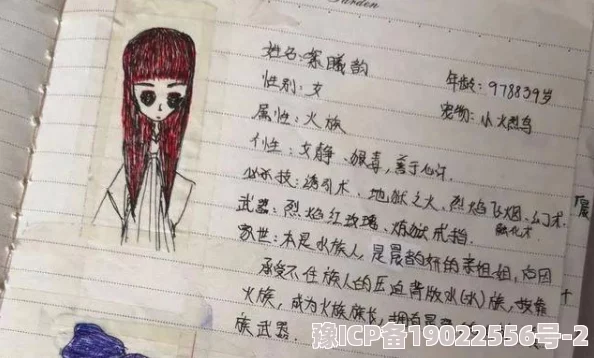 Garden
姓名:紫曦韵
性别:女 年龄:978839岁
属性:火族 宠物:小火烈鸟
个性:文静、狠毒,善于心计.
必杀技:诱引术、地狱之火、烈焰飞烟、幻术、融化术
武器:烈焰红玫瑰、炼狱戒指.
家世:本是水族人,是最韵妍的亲姐姐,
承受不住族人的压迫背叛水(冰)族,
火族,成为火族族长,拥有
族武器.
豫ICP备19022556号-2